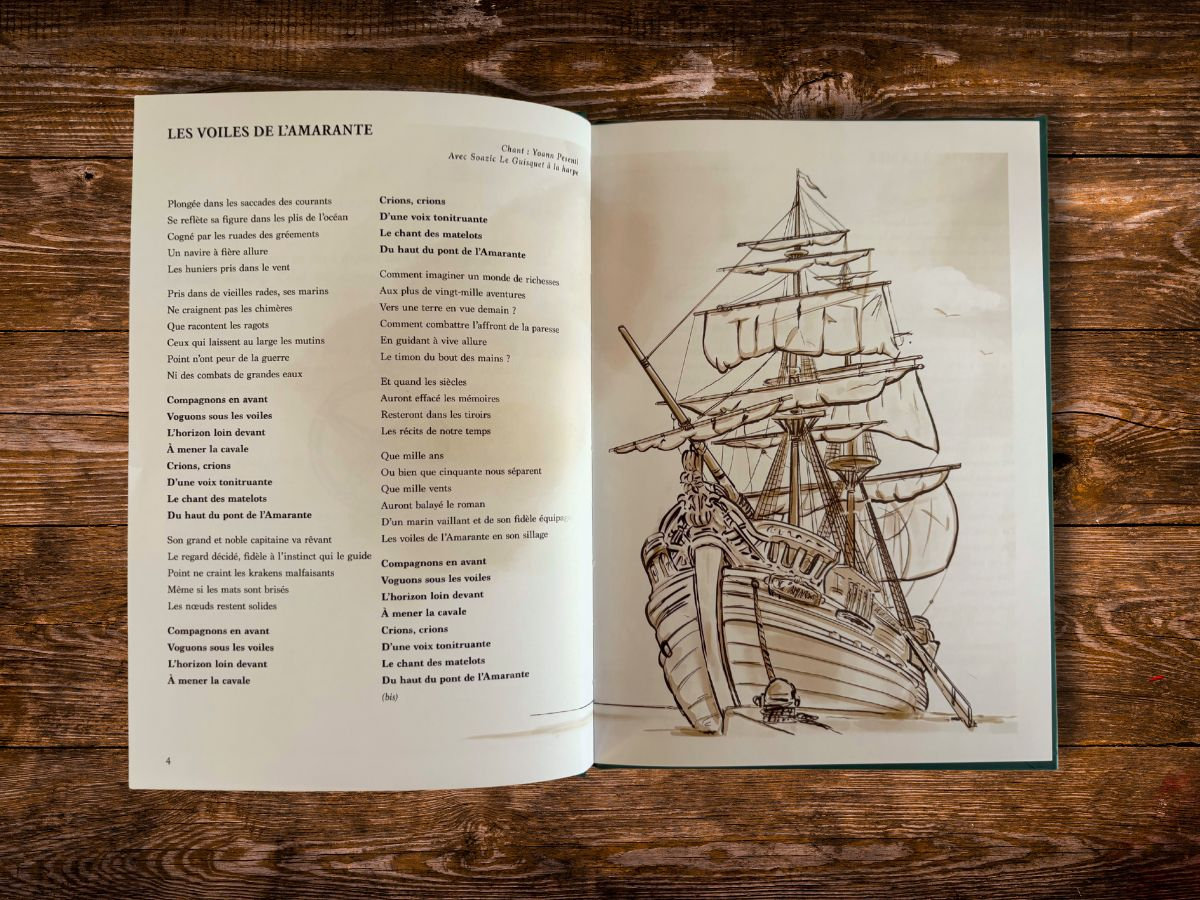 LES VOILES DE L'AMARANTE
Chant : Yoann
Avec Soazic Le Guisquet à la harpe
Plongée dans les saccades des courants
Se reflète sa figure dans les plis de l'océan
Cogné par les ruades des gréements
Un navire à fière allure
Les huniers pris dans le vent
Pris dans de vieilles rades, ses marins
Ne craignent pas les chimères
Que racontent les ragots
Ceux qui laissent au large les mutins
Point n'ont peur de la guerre
Ni des combats de grandes eaux
Compagnons en avant
Voguons sous les voiles
L'horizon loin devant
À mener la cavale
Crions, crions
D'une voix tonitruante
Le chant des matelots
Du haut du pont de l'Amarante
Son grand et noble capitaine va rêvant
Le regard décidé, fidèle à l'instinct qui le guide
Point ne craint les krakens malfaisants
Même si les mats sont brisés
Les nœuds restent solides
Compagnons en avant
Voguons sous les voiles
L'horizon loin devant
À mener la cavale
Crions, crions
D'une voix tonitruante
Le chant des matelots
Du haut du pont de l'Amarante
Comment imaginer un monde de richesses
Aux plus de vingt-mille aventures
Vers une terre en vue demain ?
Comment combattre l'affront de la paresse
En guidant à vive allure
Le timon du bout des mains ?
Et quand les siècles
Auront effacé les mémoires
Resteront dans les tiroirs
Les récits de notre temps
Que mille ans
Ou bien que cinquante nous séparent
Que mille vents
Auront balayé le roman
D'un marin vaillant et de son fidèle équipage
Les voiles de l'Amarante en son sillage
Compagnons en avant
Voguons sous les voiles
L'horizon loin devant
À mener la cavale
Crions, crions
D'une voix tonitruante
Le chant des matelots
Du haut du pont de l'Amarante
(bis)
4